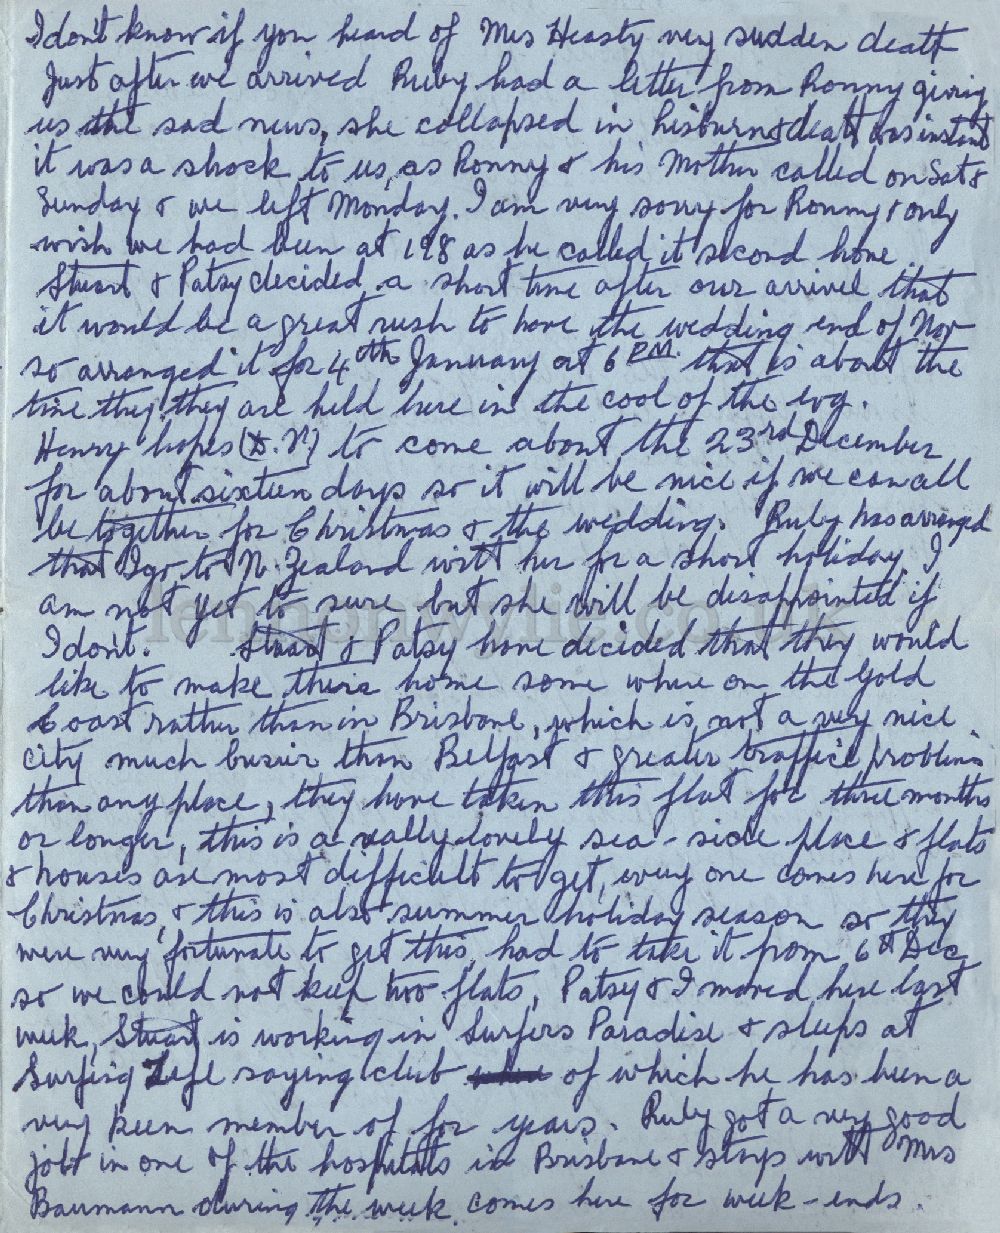 I don't know if you heard of Mrs Heasty very sudden death
Just after we arrived Ruby had a letter from Ronny giving
us the sad news, she collapsed in Lisburn & death was instant
it was a shock to us, as Ronny & his Mother called on Sat &
Sunday & we left Monday. I am very sorry for Ronny & only
wish we had been at 198 as he called it second home.
Stuart & Patsy decided a short time after our arrivel that
it would be a great rush to have the wedding end of Nov
so arranged it for 4th January at 6 PM. that is about the
time they they are held here in the cool of the evg.
Henry hopes (D.V) to come about the 23rd December
for about sixteen days so it will be nice if we can all
be together for Christmas & the wedding. Ruby has arranged
that I go to N. Zealand with her for a short holiday. I
am not yet to sure but she will be disappointed if
I don't. Stuart & Patsy have decided that they would
like to make their home some where on the Gold
Coast rather than in Brisbane, which is not a very nice
city much busier than Belfast & greater traffice problims
than any place, they have taken this flat for three months
or longer, this is a really lovely sea-side place & flats
& houses are most difficult to get, every one comes here for
Christmas, & this is also summer holiday season so they
were very fortunate to get this, had to take it from 6th Dec
so we could not keep two flats, Patsy & I moved here last
week, Stuart is working in Surfers Paradise & sleeps at
Surfing Life saving club of which he has been a
very keen member of for years. Ruby got a very good
jobt in one of the hospitals in Brisbane & stays with Mrs
Baumann during the week comes here for week-ends.
lennonwylie.co.uk